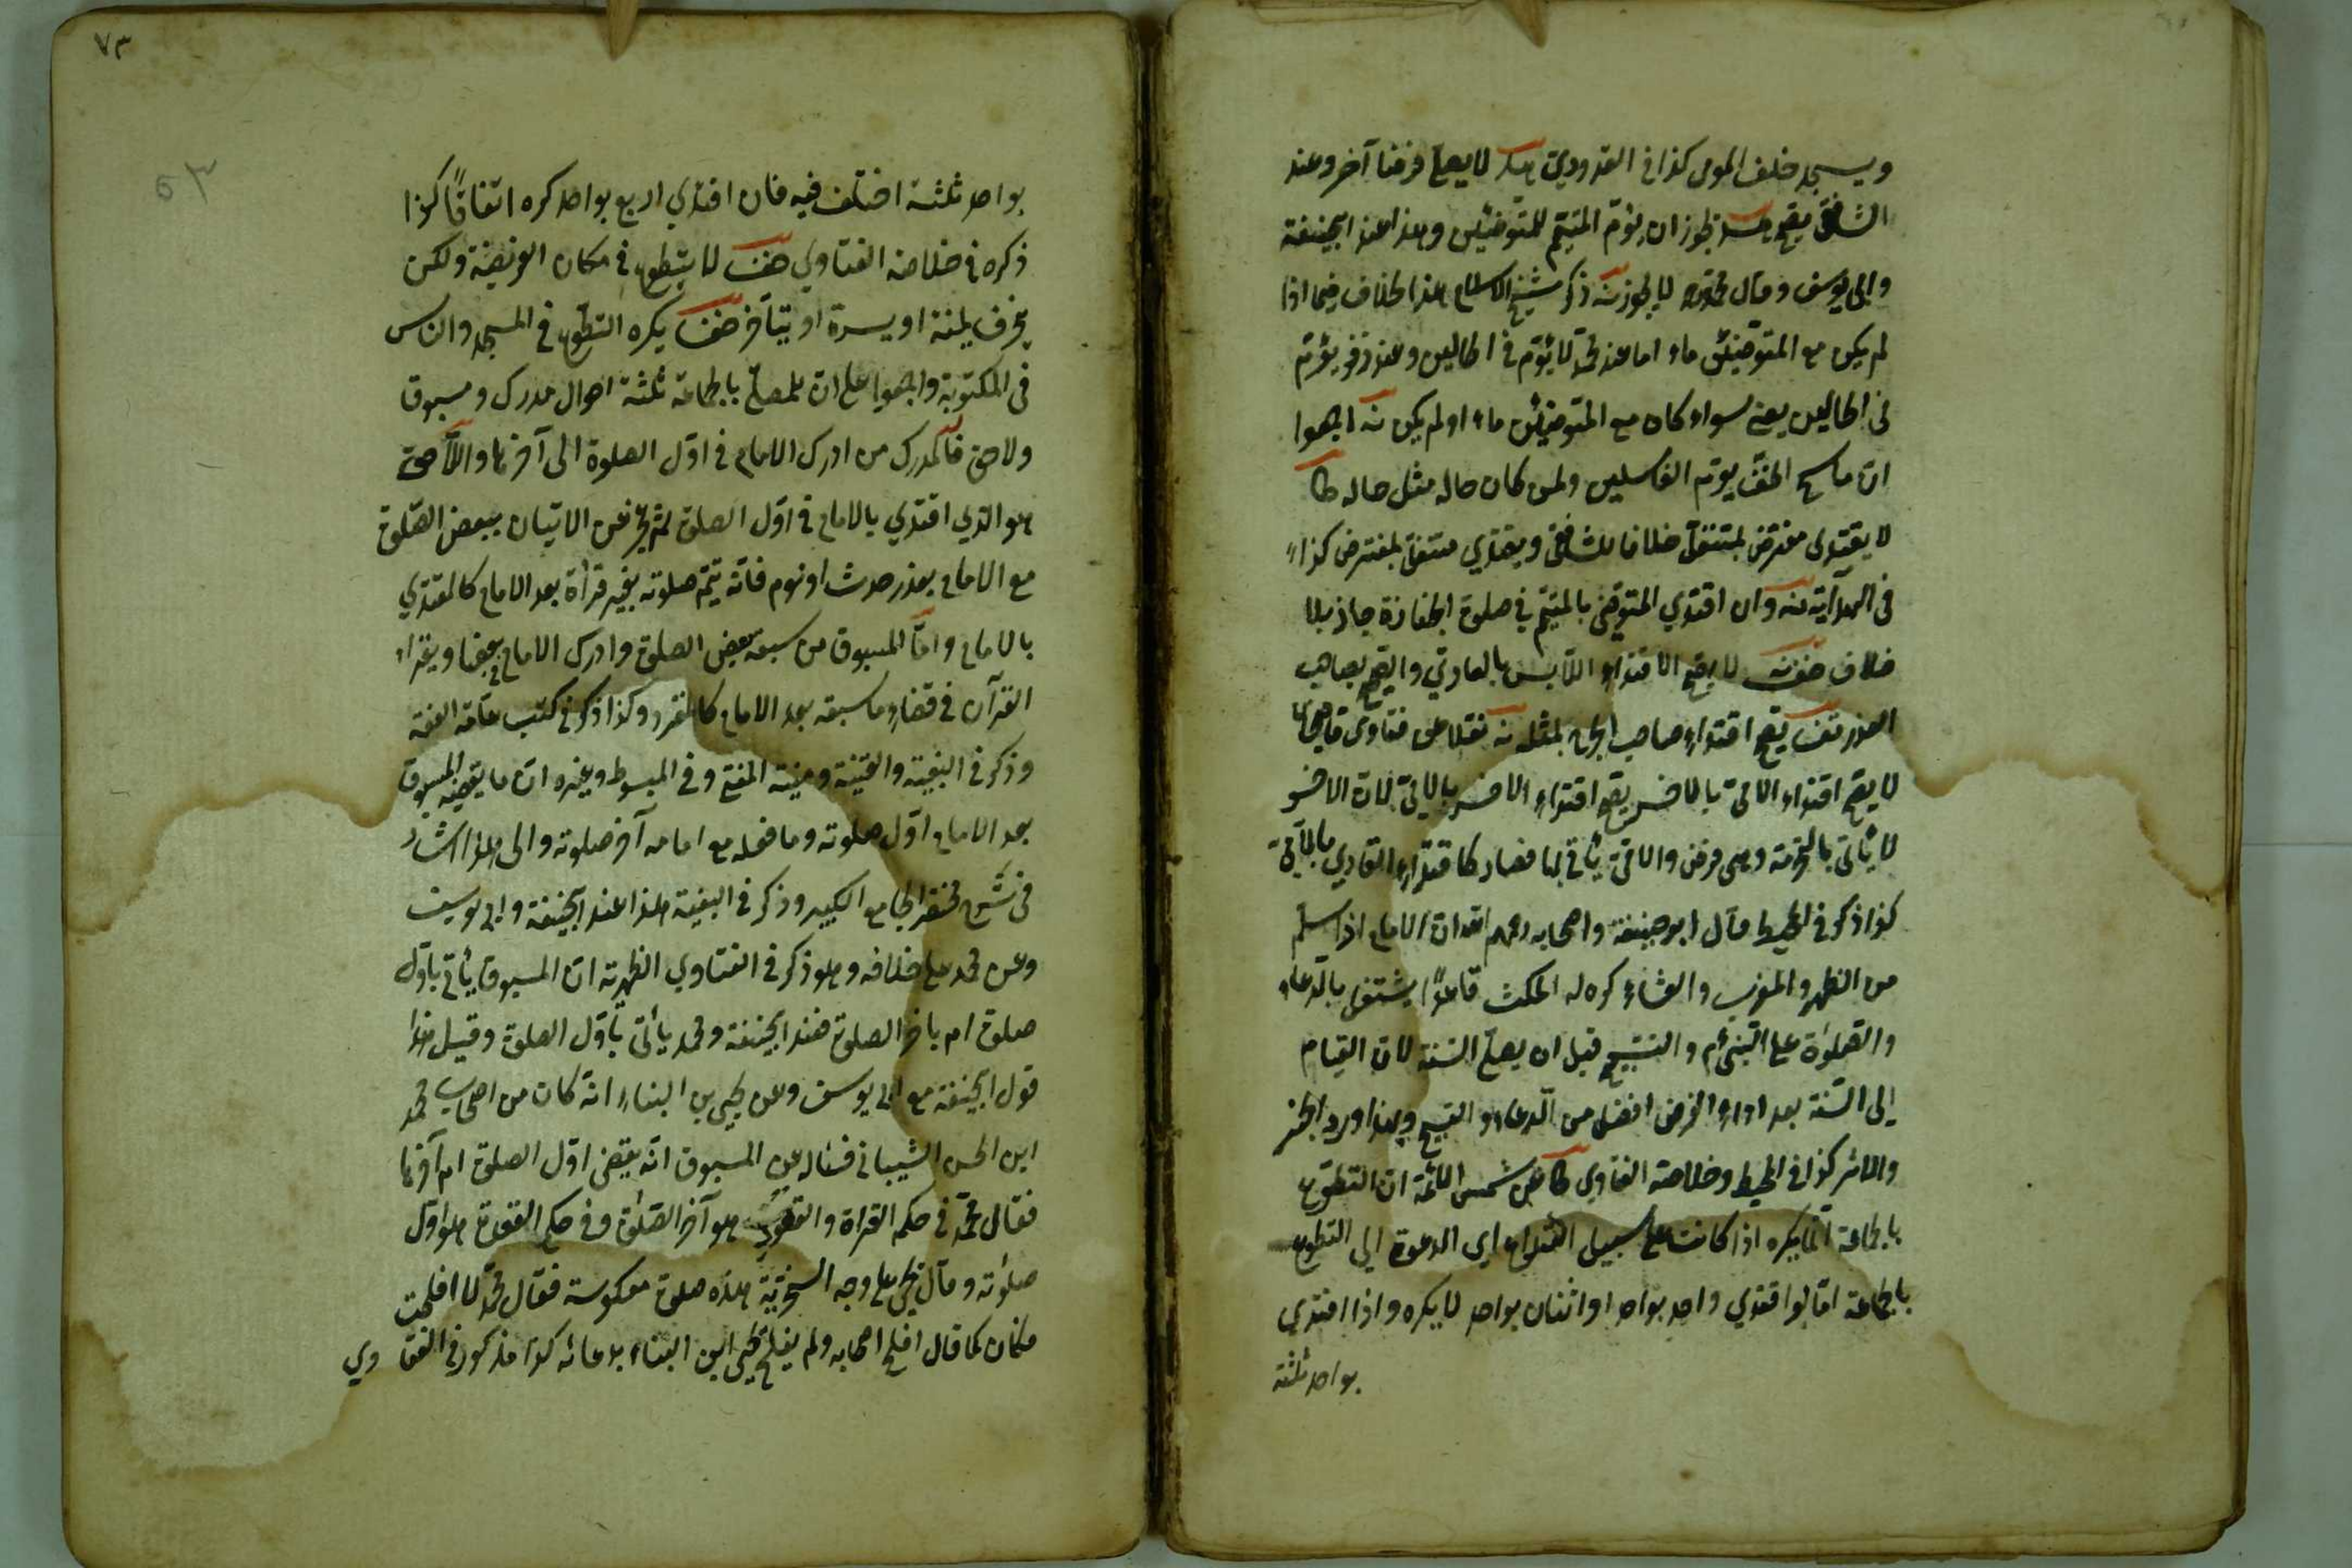 ويسجد خلف المومى كذا في القدوري لا يصلي فرضا آخر وعند
الشافعي يصح يجوز ان يؤم المتيمم للمتوضئين وهذا عند ابيحنيفة
وابي يوسف وقال محمد لا يجوز ذكر شيخ الاسلام هذا الخلاف فيما اذا
لم يكن مع المتوضئين ماء اما عند محمد لا يؤم في الحالين وعند زفر يؤم
في الحالين يعني سواء كان مع المتوضئين ماء او لم يكن نه اجمعوا
ان ماسح الخف يؤم الغاسلين ولمن كان حاله مثل حاله
لا يقتدى مفترض بمتنفل خلافا للشافعي ويقتدي متنفل بمفترض كذا
في الهداية وان اقتدي المتوضئ بالمتيمم في صلوة الجنازة جاز بلا
خلاف لا يصح الاقتداء اللابس بالعاري والصحيح بصاحب
العذر يصح اقتداء صاحب الجرح بمثله نه نقلا من فتاوى
لا يصح اقتداء الامي بالاخرس يصح اقتداء الاخرس بالامي لان الاخرس
لا يأتي بالتحريمة وهى فرض والامي يأتي بها فصار كاقتداء القاري بالامي
كذا ذكر في المحيط قال ابوحنيفة واصحابه رحمهم الله ان الامام اذا سلم
من الظهر والمغرب والعشاء كره له المكث قاعدا يشتغل بالدعاء
والصلوة على النبي م والتسبيح قبل ان يصلي السنة لان القيام
الى السنة بعد اداء الفرض افضل من الدعاء والتسبيح وبهذا ورد الخبر
والاثر كذا في المحيط وخلاصة الفتاوي شمس الائمة ان التطوع
بالجماعة انما يكره اذا كانت على سبيل التداعي اى الدعوة الى التطوع
بالجماعة اما لو اقتدي واحد بواحد او اثنان بواحد لا يكره واذا اقتدي
بواحد ثلثة
٧٣
٥٣
بواحد ثلثة اختلف فيه فان اقتدي اربع بواحد كره اتفاقا كذا
ذكره في خلاصة الفتاوي لا يتطوع في مكان الفريضة ولكن
ينحرف يمنة او يسرة او يتأخر يكره التطوع في المسجد والناس
في المكتوبة واجمعوا على ان للمصلي بالجماعة ثلثة احوال مدرك ومسبوق
ولاحق فالمدرك من ادرك الامام في اول الصلوة الى آخرها واللاحق
هو الذي اقتدي بالامام في اول الصلوة ثم عجز عن الاتيان ببعض الصلوة
مع الامام بعذر حدث او نوم فانه يتم صلوته بغير قرأة بعد الامام كالمقتدي
بالامام واما المسبوق من سبقه بعض الصلوة وادرك الامام في بعضها ويقراء
القرآن في قضاء ما سبقه بعد الامام كالمنفرد وكذا ذكر في كتب عامة الفقه
وذكر في البغية والقنية ومنية المفتي وفي المبسوط وغيره ان ما يقضيه المسبوق
بعد الامام اول صلوته وما فعله مع امامه آخر صلوته والى هذا اشار
في شرح مختصر الجامع الكبير وذكر في البغية هذا عند ابيحنيفة وابي يوسف
وعن محمد على خلافه وهو ذكر في الفتاوي الظهرية ان المسبوق يأتي باول
صلوة ام باخر الصلوة فعند ابيحنيفة ومحمد يأتي باول الصلوة وقيل هذا
قول ابيحنيفة مع ابي يوسف وعن يحيى بن البناء انه كان من اصحاب محمد
ابن الحسن الشيباني فسأله عن المسبوق انه يقضى اول الصلوة ام آخرها
فقال محمد في حكم القراة والقنوت هو آخر الصلوة وفي حكم القعدة هو اول
صلوته وقال يحيى على وجه السخرية هذه صلوة معكوسة فقال محمد لا افلحت
فكان كما قال افلح اصحابه ولم يفلح يحيى ابن البناء بدعائه كذا مذكور في الفتاوي